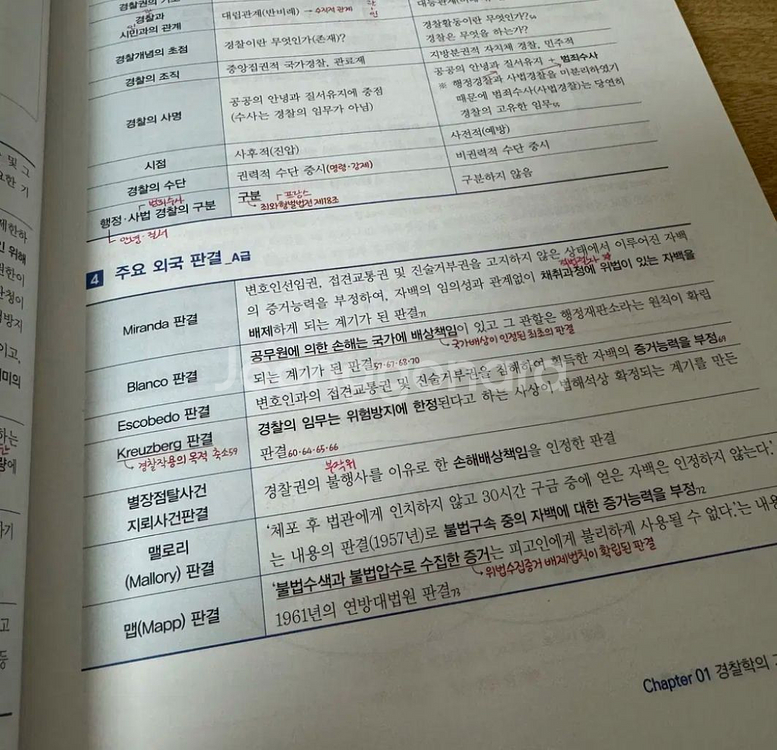 경찰과
시민과의 관계
대립관계(반비례) → 수직적 관계
경찰개념의 초점
경찰이란 무엇인가(존재)?
경찰활동이란 무엇인가?64
경찰은 무엇을 하는가?
경찰의 조직
중앙집권적 국가경찰, 관료제
지방분권적 자치체 경찰, 민주적
경찰의 사명
공공의 안녕과 질서유지에 중점
(수사는 경찰의 임무가 아님)
공공의 안녕과 질서유지 + 범죄수사
※ 행정경찰과 사법경찰을 미분리하였기
때문에 범죄수사(사법경찰)는 당연히
경찰의 고유한 임무
시점
사후적(진압)
사전적(예방)
경찰의 수단
권력적 수단 중시(명령·강제)
비권력적 수단 중시
범죄수사
행정·사법 경찰의 구분
안녕·질서
구분
프랑스
죄와형벌법전 제18조
구분하지 않음
4 주요 외국 판결_A급
Miranda 판결
변호인선임권, 접견교통권 및 진술거부권을 고지하지 않은 상태에서 이루어진 자백
의 증거능력을 부정하여, 자백의 임의성과 관계없이 채취과정에 위법이 있는 자백을
배제하게 되는 계기가 된 판결71
Blanco 판결
공무원에 의한 손해는 국가에 배상책임이 있고 그 관할은 행정재판소라는 원칙이 확립
되는 계기가 된 판결57·67·68·70
국가배상이 인정된 최초의 판결
Escobedo 판결
변호인과의 접견교통권 및 진술거부권을 침해하여 획득한 자백의 증거능력을 부정69
Kreuzberg 판결
경찰작용의 목적 축소59
경찰의 임무는 위험방지에 한정된다고 하는 사상이 법해석상 확정되는 계기를 만든
판결60·64·65·66
별장점탈사건
지뢰사건판결
부작위
경찰권의 불행사를 이유로 한 손해배상책임을 인정한 판결
맬로리
(Mallory) 판결
‘체포 후 법관에게 인치하지 않고 30시간 구금 중에 얻은 자백은 인정하지 않는다.’
는 내용의 판결(1957년)로 불법구속 중의 자백에 대한 증거능력을 부정72
맵(Mapp) 판결
‘불법수색과 불법압수로 수집한 증거는 피고인에게 불리하게 사용될 수 없다.’는 내용
위법수집증거 배제법칙이 확립된 판결
1961년의 연방대법원 판결73
Chapter 01 경찰학의